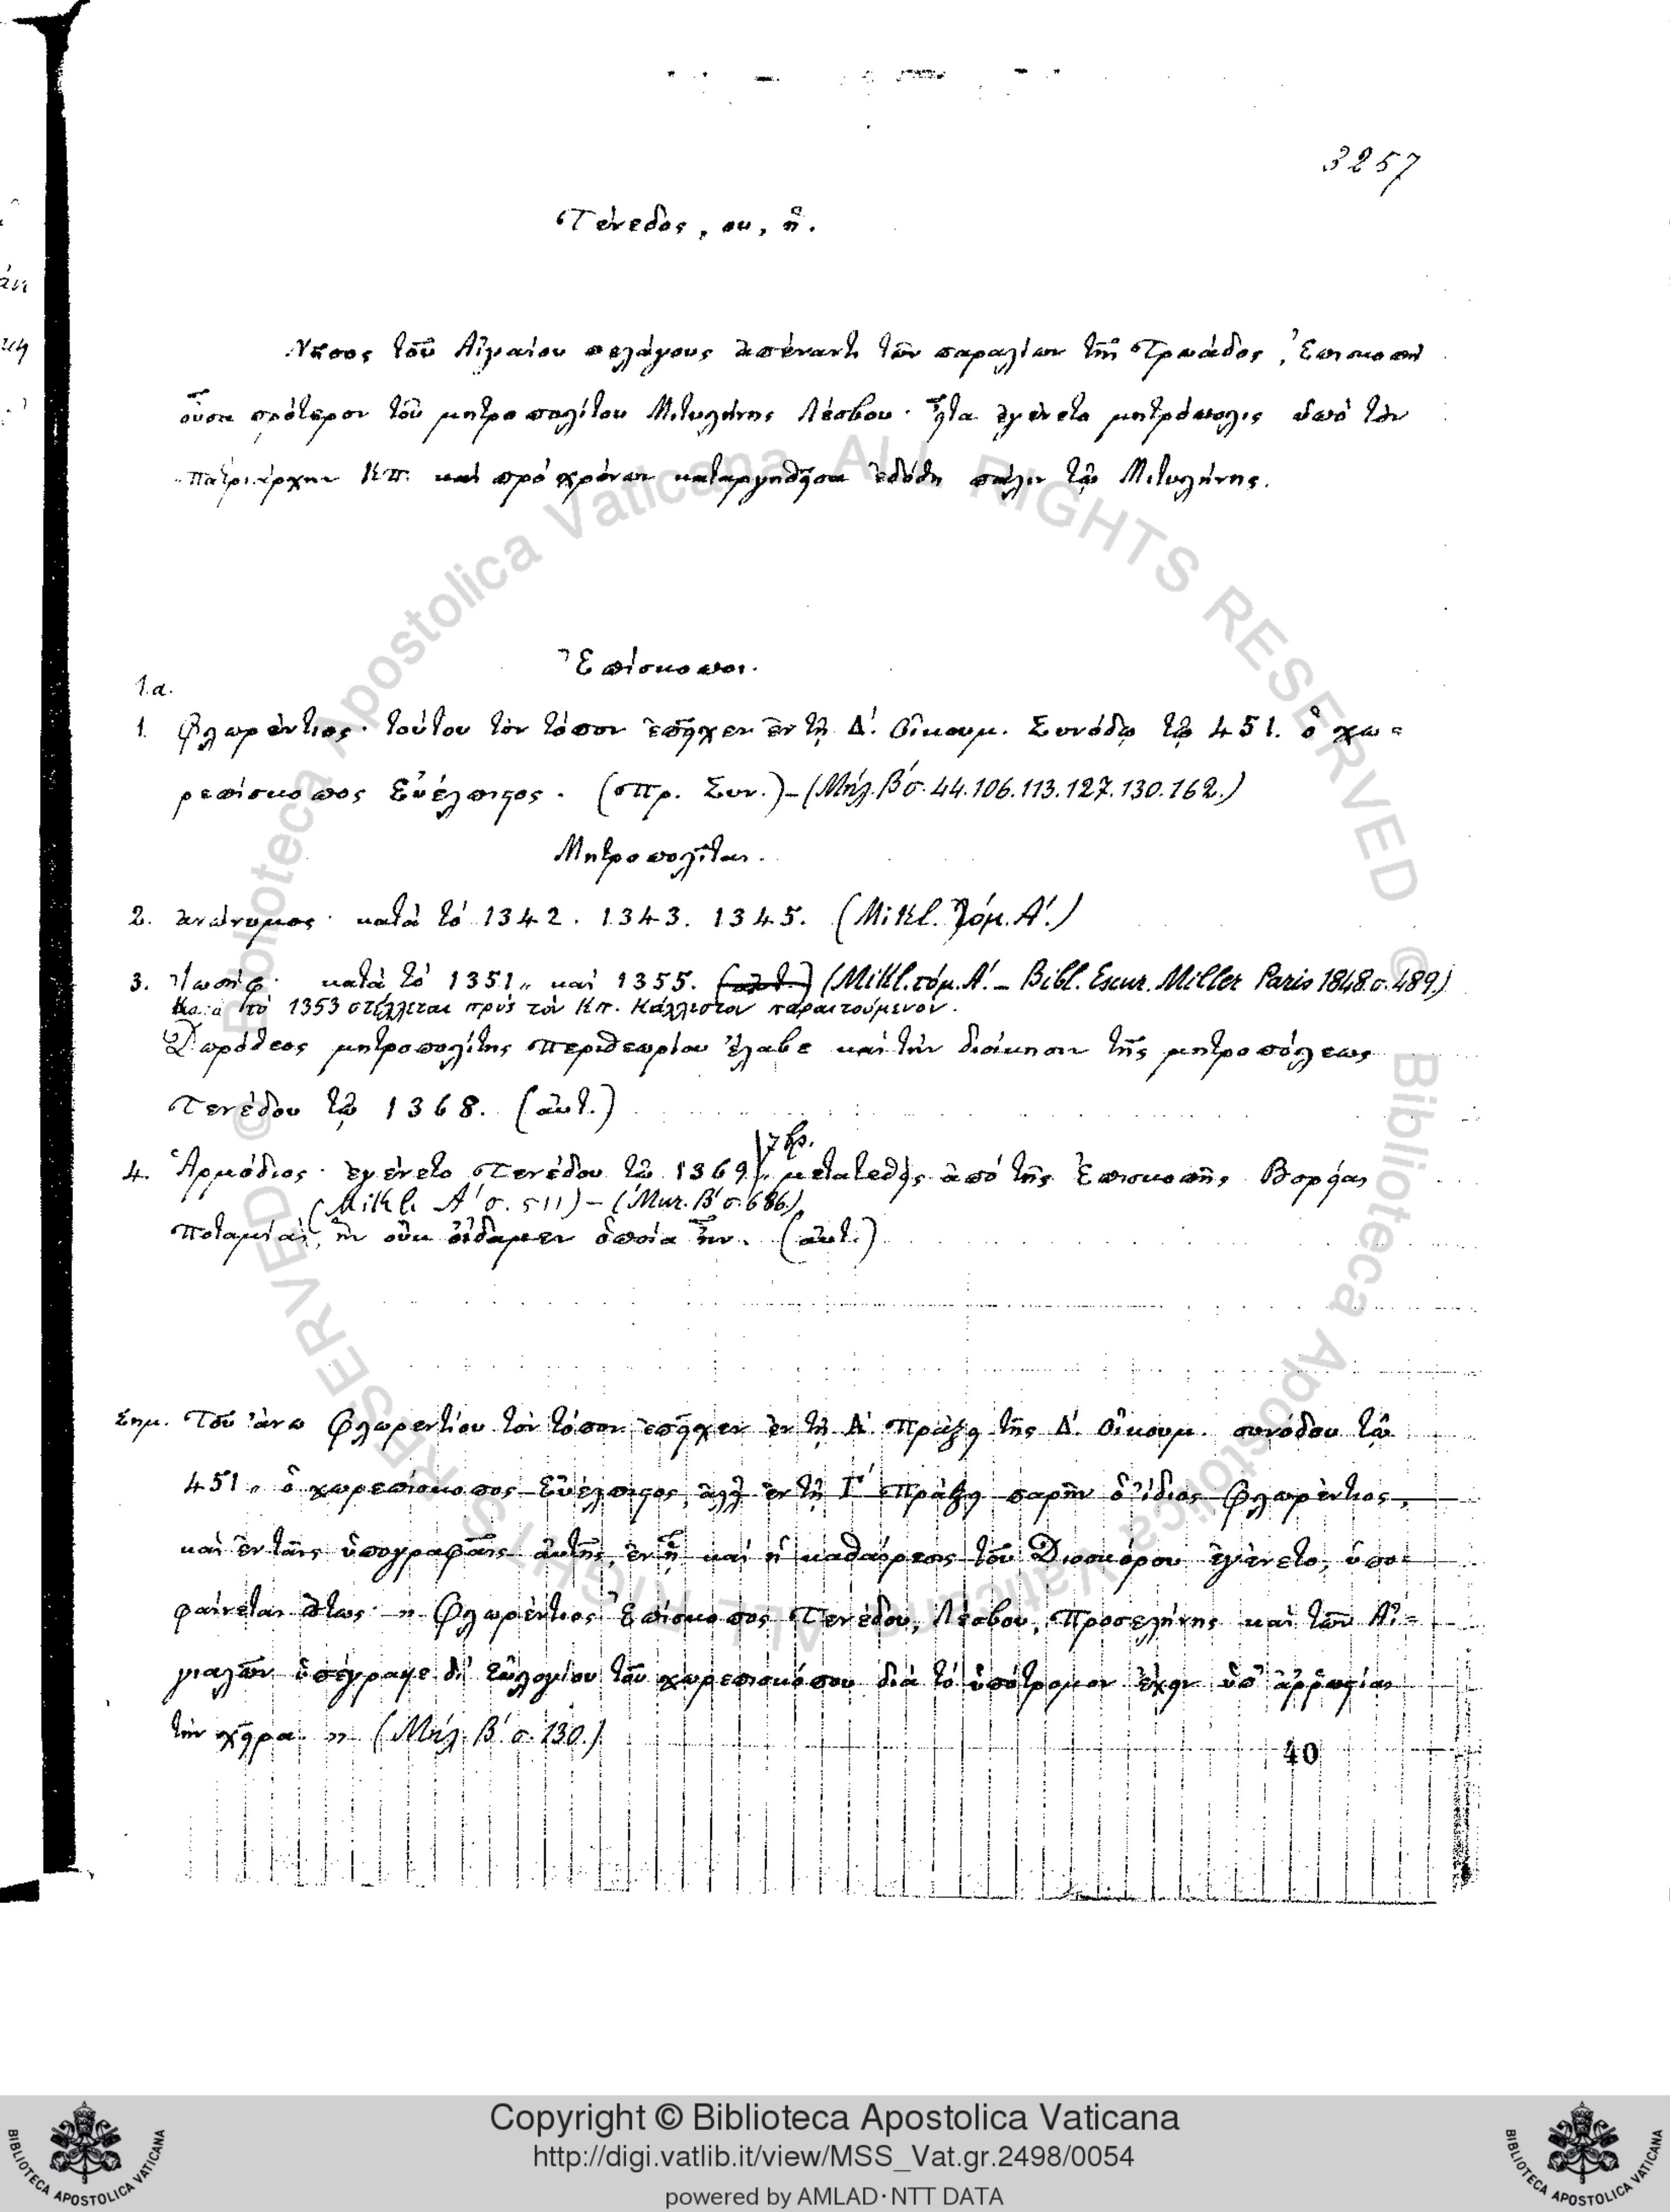 3257
Τένεδος, ου, ἡ.
Νῆσος τοῦ Αἰγαίου πελάγους ἀπέναντι τῶν παραλίων τῆς Τρωάδος, Ἐπισκοπὴ
οὖσα πρότερον τοῦ μητροπολίτου Μιτυλήνης Λέσβου· εἶτα ἐγένετο μητρόπολις ὑπὸ τὸν
Πατριάρχην Κπ. καὶ πρὸ χρόνων καταργηθεῖσα ἐδόθη πάλιν τῷ Μιτυλήνης.
Ἐπίσκοποι.
1.α.
1. Φλωρέντιος· τούτου τὸν τόπον ἐπεῖχεν ἐν τῇ Δ΄. Οἰκουμ. Συνόδῳ τῷ 451. ὁ χω=
ρεπίσκοπος Εὐέλπιστος. (Πρ. Συν.) – (Μήλ. Β΄ σ. 44.106.113.127.130.162.)
Μητροπολῖται.
2. ἀνώνυμος· κατὰ τὸ 1342. 1343. 1345. (Mikl. Τόμ. Α΄.)
3. Ἰωσήφ· κατὰ τὸ 1351 „ καὶ 1355. (αὐτ.) (Mikl. τόμ. Α΄. – Bibl. Escur. Miller Paris 1848. σ. 489)
Κατὰ τὸ 1353 στέλλεται πρὸς τὸν Κπ. Κάλλιστον παραιτούμενον.
Δωρόθεος μητροπολίτης Περιθεωρίου ἔλαβε καὶ τὴν διοίκησιν τῆς μητροπόλεως
Τενέδου τῷ 1368. (αὐτ.)
7βρ.
4. Ἁρμόδιος· ἐγένετο Τενέδου τῷ 1369 „ μετατεθεὶς ἀπὸ τῆς Ἐπισκοπῆς Βορείας
(Mikl. Α΄ σ. 511) – (Mur. Β΄ σ. 686.)
Ποταμίας, ἣν οὐκ οἴδαμεν ὁποία ἦν. (αὐτ.)
Σημ. Τοῦ ἄνω Φλωρεντίου τὸν τόπον ἐπεῖχεν ἐν τῇ Α΄ Πράξει τῆς Δ΄ Οἰκουμ. συνόδου τῷ
451 „ ὁ χωρεπίσκοπος Εὐέλπιστος, ἀλλ' ἐν τῇ Γ΄ Πράξει παρῆν ὁ ἴδιος Φλωρέντιος,
καὶ ἐν ταῖς ὑπογραφαῖς αὐτῆς, ἐν ᾗ καὶ ἡ καθαίρεσις τοῦ Διοσκόρου ἐγένετο, ὑπο=
φαίνεται οὕτως· „ Φλωρέντιος Ἐπίσκοπος Τενέδου, Λέσβου, Προσελήνης καὶ τῶν Αἰ=
γιαλῶν ὑπέγραψε δι' Εὐλογίου τοῦ χωρεπισκόπου διὰ τὸ ὑπότρομον ἔχειν ὑπ' ἀῤῥωστίας
τὴν χεῖρα. „ (Μήλ. Β΄ σ. 130.)
40
© Biblioteca Apostolica Vaticana ALL RIGHTS RESERVED © Biblioteca Apostolica Vaticana ALL RIGHTS RESERVED
Copyright © Biblioteca Apostolica Vaticana
http://digi.vatlib.it/view/MSS_Vat.gr.2498/0054
powered by AMLAD·NTT DATA
BIBLIOTECA APOSTOLICA VATICANA
BIBLIOTECA APOSTOLICA VATICANA